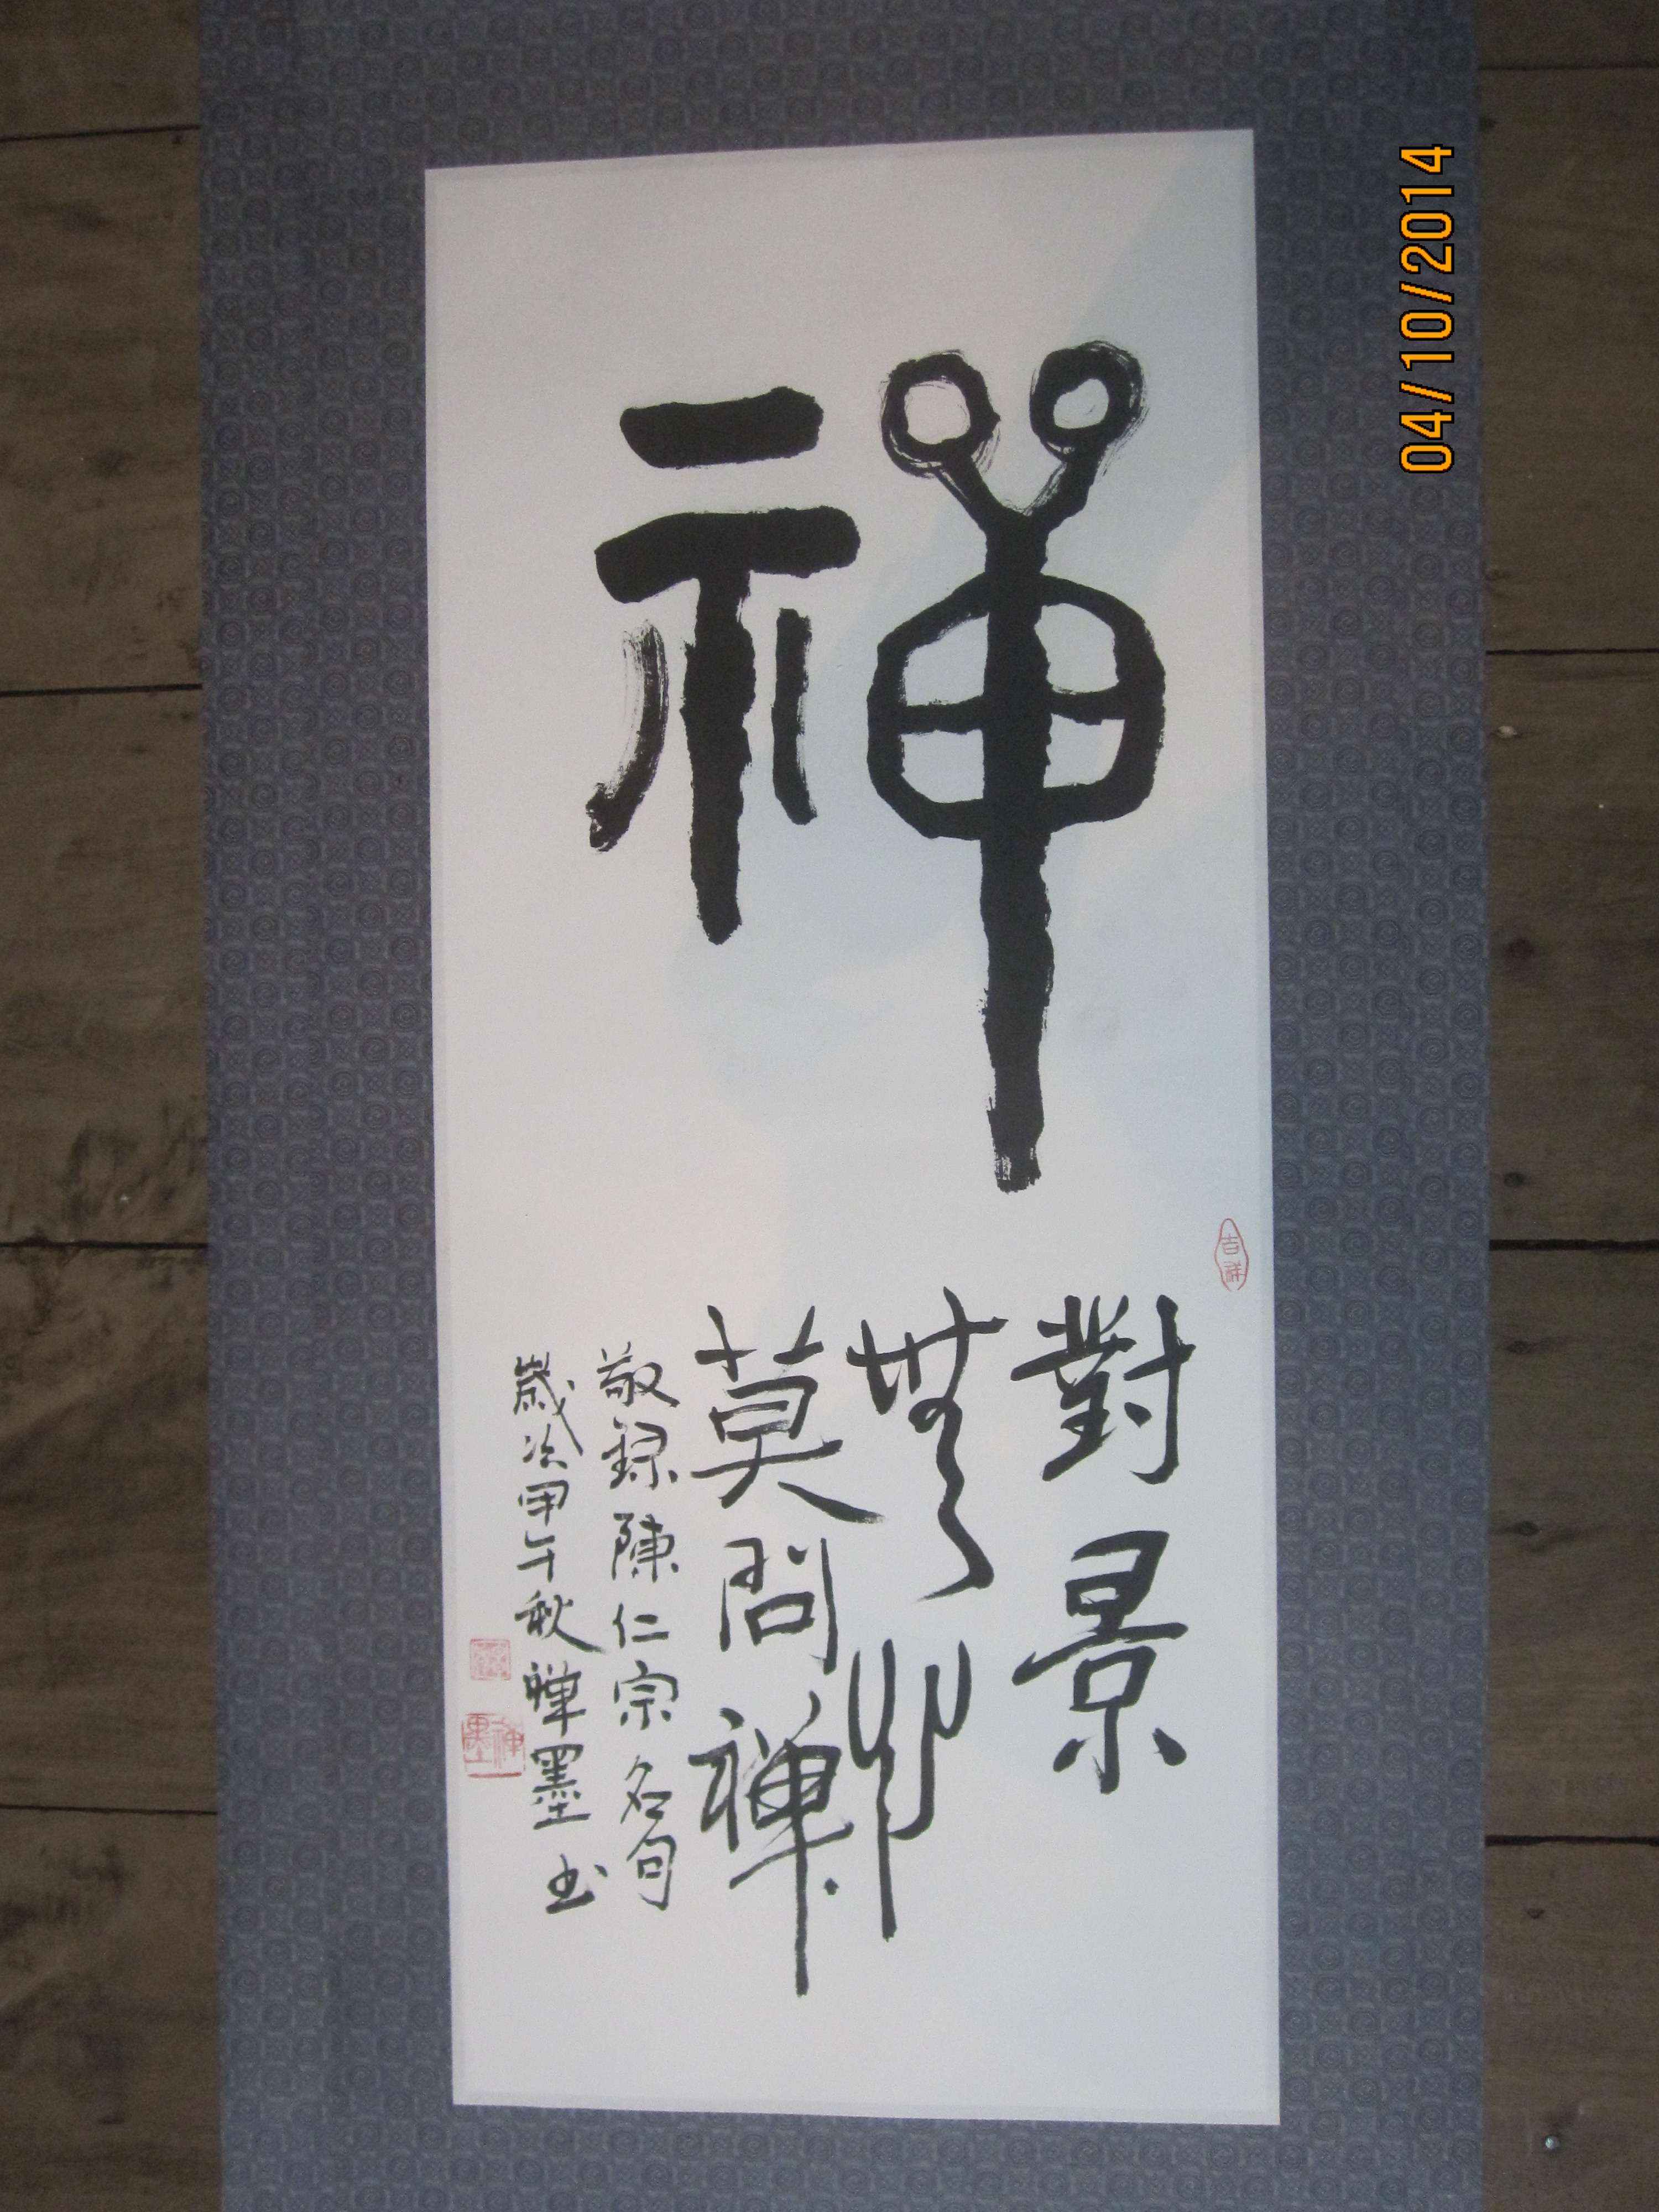 禪
吉祥
對景
無心
莫問禪
敬錄陳仁宗名句
歲次甲午秋禪墨书
禪墨
04/10/2014